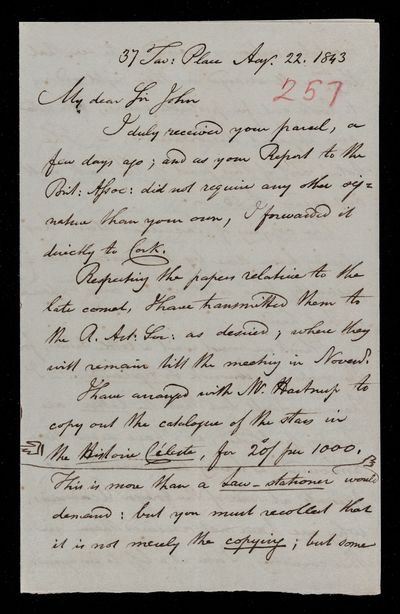 37 Tav: Place Aug. 22. 1843
257
My dear Sir John
I duly received your parcel, a
few days ago; and as your Report to the
Brit: Assoc: did not require any other sig=
nature than your own, I forwarded it
directly to Cork.
Respecting the papers relative to the
late comet, I have transmitted them to
the R. Ast. Soc: as desired; where they
will remain till the meeting in Novem.
I have arranged with Mr. Hartnup to
copy out the catalogue of the stars in
the Histoire Céleste, for 20/ per 1000.
This is more than a Law-stationer would
demand: but you must recollect that
it is not merely the copying; but some